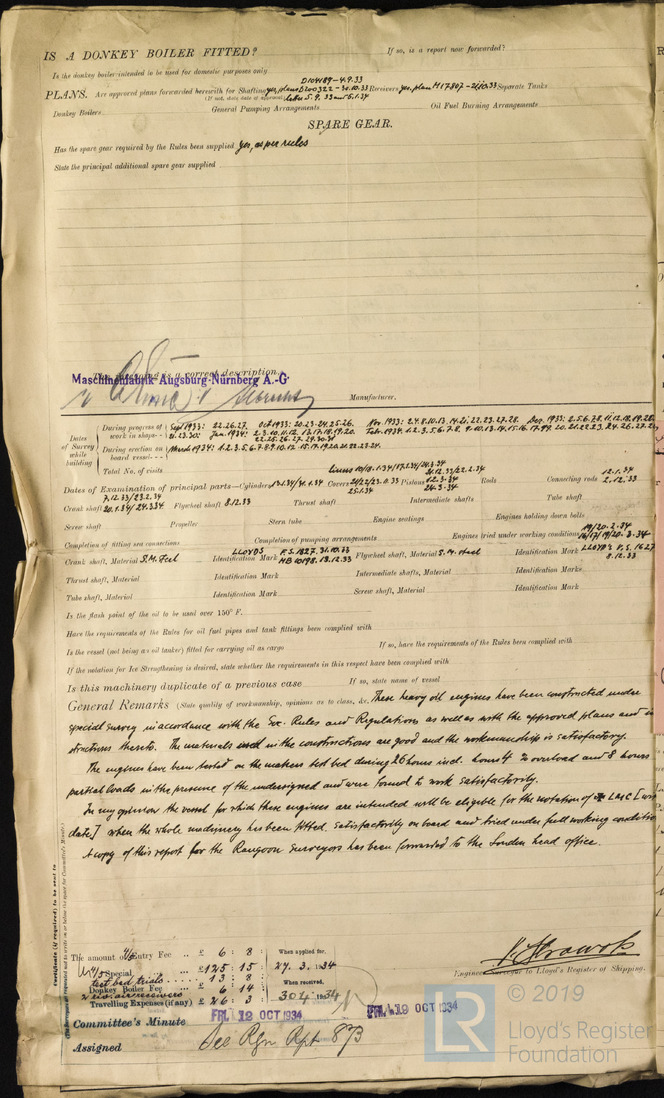 IS A DONKEY BOILER FITTED? If so, is a report now forwarded?
Is the donkey boiler intended to be used for domestic purposes only
D104189-4.9.33
PLANS. Are approved plans forwarded herewith for Shafting yes, plans D200322 - 30.10.33 Receivers yes, plan M17807 - 21.10.33 Separate Tanks
(If not, state date of approval)
Donkey Boilers General Pumping Arrangements Oil Fuel Burning Arrangements
SPARE GEAR.
Has the spare gear required by the Rules been supplied yes, as per rules
State the principal additional spare gear supplied
The foregoing is a correct description,
Maschinenfabrik Augsburg-Nürnberg A.-G.
Manufacturer.
Dates of Survey while building
During progress of work in shops - - Sept 1933: 22.26.27. Oct 1933: 20.23.24.25.26. Nov. 1933: 2.4.8.10.13.14.21.22.23.27.28. Dec. 1933: 2.5.6.7.8.11.12.18.19.20.
21.23.30: Jan. 1934: 2.3.10.11.12.13.17.18.19.20. 22.25.26.27.29.30.31 Feb. 1934: 1.2.3.5.6.7.8.9.10.13.14.15.16.17.19.20.21.22.23.24.26.27.
During erection on board vessel - - - March 1934: 1.2.3.5.6.7.8.9.10.12.15.17.19.20.21.22.23.24.
Total No. of visits
Dates of Examination of principal parts—Cylinders Covers Pistons Rods Connecting rods 12.1.34 2.12.33
Crank shaft 7.12.33/23.2.34 20.1.34/24.3.34 Flywheel shaft 8.12.33 Thrust shaft Intermediate shafts Tube shaft
Screw shaft Propeller Stern tube Engine seatings Engines holding down bolts
Completion of fitting sea connections Completion of pumping arrangements Engines tried under working conditions 16/17/19/20.3.34
Crank shaft, Material S.M. Steel Identification Mark LLOYDS P.S. 1827. 31.10.33 MB 10198. 13.12.33 Flywheel shaft, Material S.M. steel Identification Mark LLOYD'S P.S. 1627 8.12.33
Thrust shaft, Material Identification Mark Intermediate shafts, Material Identification Marks
Tube shaft, Material Identification Mark Screw shaft, Material Identification Mark
Is the flash point of the oil to be used over 150° F.
Have the requirements of the Rules for oil fuel pipes and tank fittings been complied with
Is the vessel (not being an oil tanker) fitted for carrying oil as cargo If so, have the requirements of the Rules been complied with
If the notation for Ice Strengthening is desired, state whether the requirements in this respect have been complied with
Is this machinery duplicate of a previous case If so, state name of vessel
General Remarks (State quality of workmanship, opinions as to class, &c. These heavy oil engines have been constructed under
special survey in accordance with the Soc. Rules and Regulations as well as with the approved plans and in
structions thereto. The materials used in the constructions are good and the workmanship is satisfactory.
The engines have been tested on the makers test bed during 26 hours incl. hours 4 % overload and 8 hours
partial loads in the presence of the undersigned and were found to work satisfactorily.
In my opinion the vessel for which these engines are intended will be eligible for the notation of LMC [with
date] when the whole machinery has been fitted satisfactorily on board and tried under full working conditions
A copy of this report for the Rangoon Surveyors has been forwarded to the London head office.
Certificate (if required) to be sent to
The amount of Entry Fee .. £ 6 : 8 : When applied for,
4/5 Special ... £ 125 : 15 : 27. 3. 1934
test bed trials .... 13 : 8 :
Donkey Boiler Fee ... £ 6 : 14 : When received,
2 air receivers
Travelling Expenses (if any) £ 26 : 3 : 30 4 1934
Engineer Surveyor to Lloyd's Register of Shipping.
Committee's Minute FRI. 12 OCT 1934 FRI. 19 OCT 1934
Assigned See Rgn Rpt 873
© 2019
LR
Lloyd's Register
Foundation